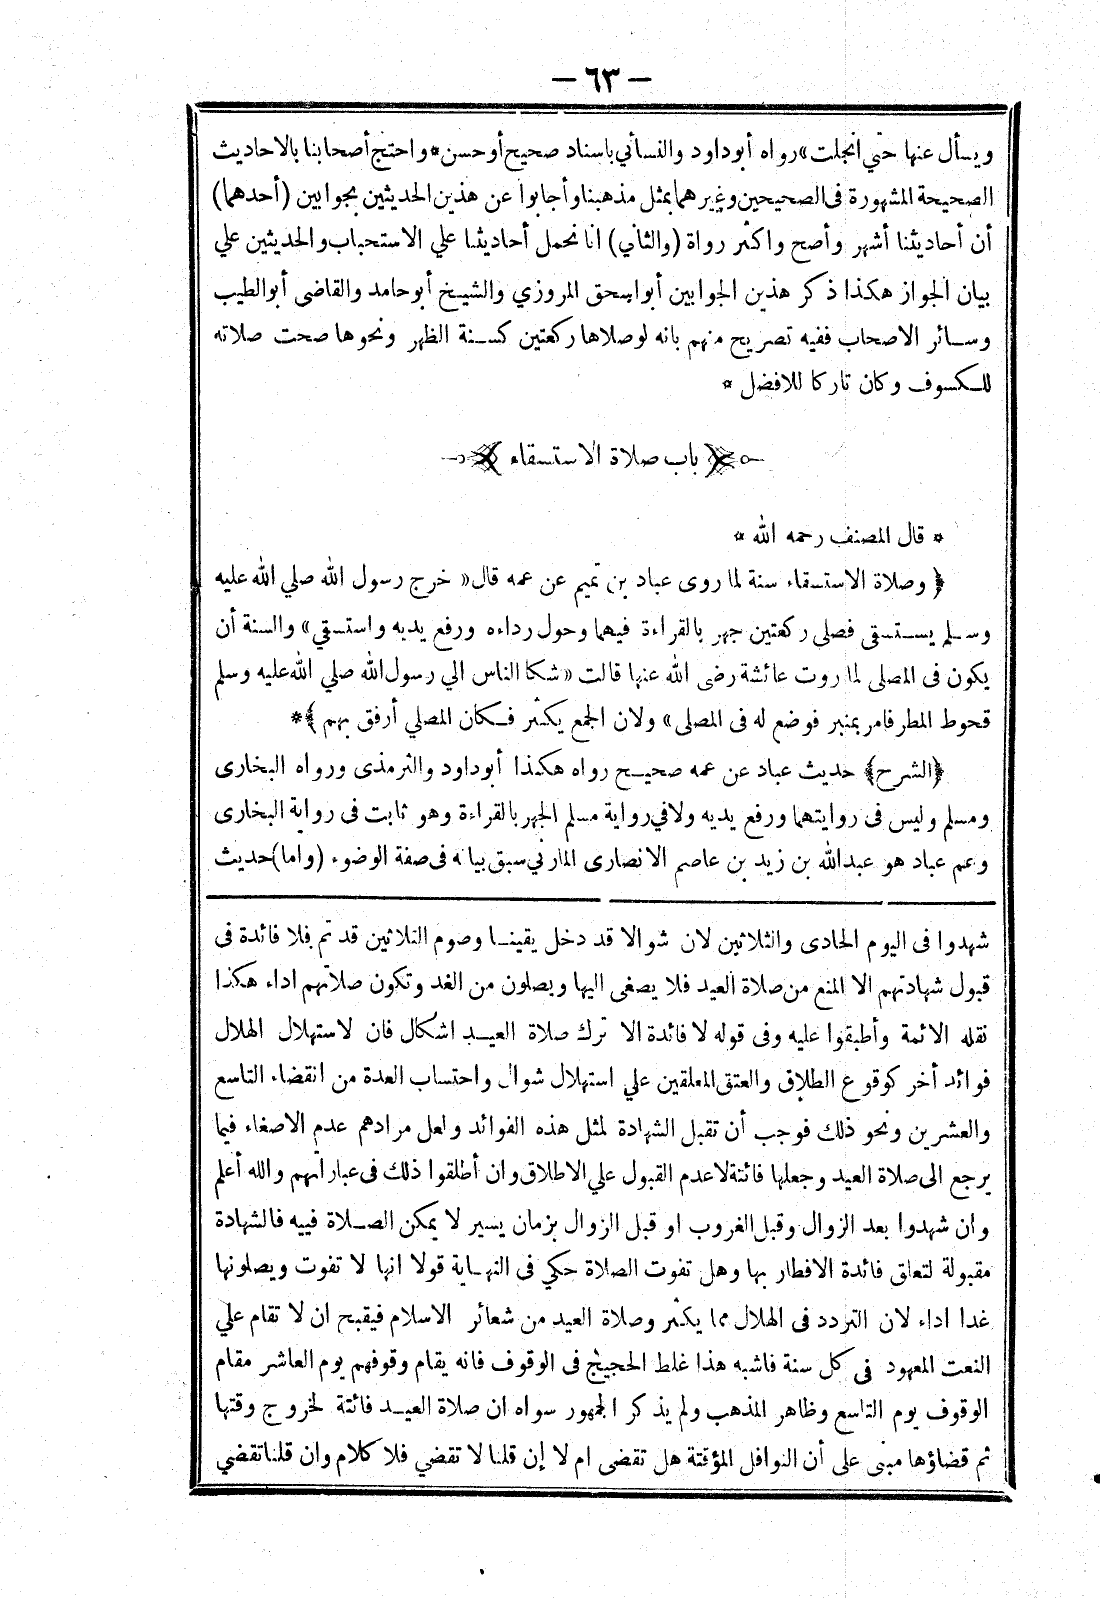 — ٦٣ —
ويسأل عنها حتي انجلت» رواه أبوداود والنسائي باسناد صحيح أوحسن * واحتج أصحابنا بالاحاديث
الصحيحة المشهورة فى الصحيحين وغيرهما بمثل مذهبنا وأجابوا عن هذين الحديثين بجوابين (أحدهما)
أن أحاديثنا أشهر وأصح واكثر رواة (والثاني) انا نحمل أحاديثنا علي الاستحباب والحديثين علي
بيان الجواز هكذا ذكر هذين الجوابين أبواسحق المروزي والشيخ أبوحامد والقاضى أبوالطيب
وسائر الاصحاب ففيه تصريح منهم بانه لوصلاها ركعتين كسنة الظهر ونحوها صحت صلاته
للكسوف وكان تاركا للافضل *
باب صلاة الاستسقاء
* قال المصنف رحمه الله *
﴿ وصلاة الاستسقاء سنة لما روى عباد بن تميم عن عمه قال « خرج رسول الله صلي الله عليه
وسلم يستسقى فصلى ركعتين جهر بالقراءة فيهما وحول رداءه ورفع يديه واستسقي» والسنة أن
يكون فى المصلى لما روت عائشة رضى الله عنها قالت «شكا الناس الي رسول الله صلي الله عليه وسلم
قحوط المطر فامر بمنبر فوضع له فى المصلى» ولان الجمع يكثر فكان المصلي أرفق بهم ﴾*
﴿الشرح﴾ حديث عباد عن عمه صحيح رواه هكذا أبوداود والترمذى ورواه البخارى
ومسلم وليس فى روايتهما ورفع يديه ولافي رواية مسلم الجهر بالقراءة وهو ثابت فى رواية البخارى
وعم عباد هو عبدالله بن زيد بن عاصم الانصارى المازني سبق بيانه فى صفة الوضوء (واما) حديث
شهدوا فى اليوم الحادى والثلاثين لان شوالا قد دخل يقينا وصوم الثلاثين قد تم فلا فائدة فى
قبول شهادتهم الا المنع من صلاة العيد فلا يصغى اليها ويصلون من الغد وتكون صلاتهم اداء هكذا
نقله الائمة وأطبقوا عليه وفى قوله لا فائدة الا ترك صلاة العيد اشكال فان لاستهلال الهلال
فوائد أخر كوقوع الطلاق والعتق المعلقين علي استهلال شوال واحتساب العدة من انقضاء التاسع
والعشرين ونحو ذلك فوجب أن تقبل الشهادة لمثل هذه الفوائد ولعل مرادهم عدم الاصغاء فيما
يرجع الى صلاة العيد وجعلها فائتة لاعدم القبول علي الاطلاق وان أطلقوا ذلك فى عباراتهم والله أعلم
وان شهدوا بعد الزوال وقبل الغروب او قبل الزوال بزمان يسير لا يمكن الصلاة فييه فالشهادة
مقبولة لتعلق فائدة الافطار بها وهل تفوت الصلاة حكي فى النهاية قولا انها لا تفوت ويصلونها
غدا اداء لان التردد فى الهلال مما يكثر وصلاة العيد من شعائر الاسلام فيقبح ان لا تقام علي
النعت المعهود في كل سنة فاشبه هذا غلط الحجيج فى الوقوف فانه يقام وقوفهم يوم العاشر مقام
الوقوف يوم التاسع وظاهر المذهب ولم يذكر الجمهور سواه ان صلاة العيد فائتة لخروج وقتها
ثم قضاؤها مبنى على أن النوافل المؤقتة هل تقضى ام لا إن قلنا لا تقضي فلا كلام وان قلنا تقضي